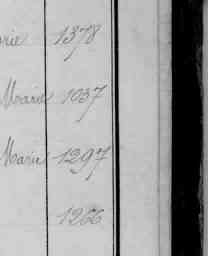 rie 1378
Marie 1037
Marie 1297
1266